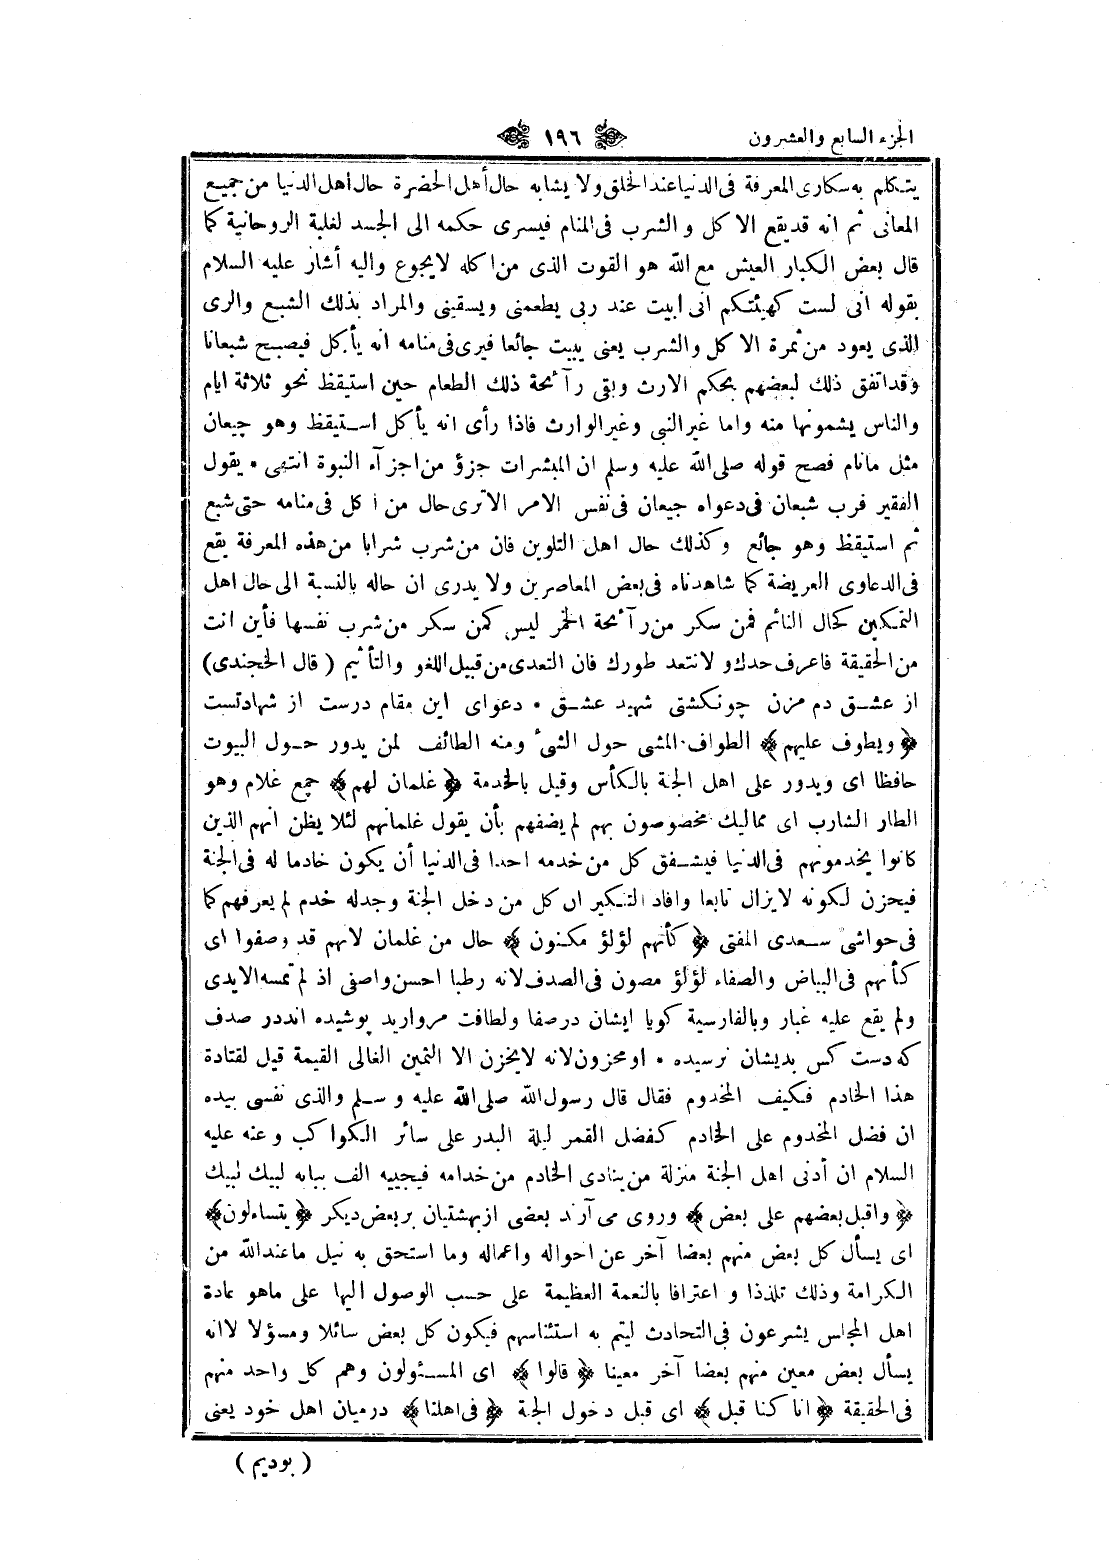 الجزء السابع والعشرون ١٩٦
يتكلم به سكارى المعرفة فى الدنيا عند الخلق ولا يشابه حال أهل الحضرة حال اهل الدنيا من جميع
المعانى ثم انه قد يقع الاكل والشرب فى المنام فيسرى حكمه الى الجسد لغلبة الروحانية كما
قال بعض الكبار العيش مع الله هو القوت الذى من اكله لايجوع واليه أشار عليه السلام
بقوله انى لست كهيئتكم انى ابيت عند ربى يطعمنى ويسقينى والمراد بذلك الشبع والرى
الذى يعود من ثمرة الاكل والشرب يعنى يبيت جائعا فيرى فى منامه انه يأكل فيصبح شبعانا
وقد اتفق ذلك لبعضهم بحكم الارث وبقى رآئحة ذلك الطعام حين استيقظ نحو ثلاثة ايام
والناس يشمونها منه واما غير النبى وغير الوارث فاذا رأى انه يأكل استيقظ وهو جيعان
مثل مانام فصح قوله صلى الله عليه وسلم ان المبشرات جزؤ من اجزآء النبوة انتهى * يقول
الفقير فرب شبعان فى دعواه جيعان فى نفس الامر الاترى حال من أكل فى منامه حتى شبع
ثم استيقظ وهو جائع وكذلك حال اهل التلوين فان من شرب شرابا من هذه المعرفة يقع
فى الدعاوى العريضة كما شاهدناه فى بعض المعاصرين ولا يدرى ان حاله بالنسبة الى حال اهل
التمكين كحال النائم فمن سكر من رآئحة الخمر ليس كمن سكر من شرب نفسها فأين انت
من الحقيقة فاعرف حدك ولا تتعد طورك فان التعدى من قبيل اللغو والتأثيم ( قال الخجندى)
از عشق دم مزن چونكشتى شهيد عشق * دعواى اين مقام درست از شهادتست
﴿ ويطوف عليهم﴾ الطواف المشى حول الشئ ومنه الطائف لمن يدور حول البيوت
حافظا اى ويدور على اهل الجنة بالكأس وقيل بالخدمة ﴿ غلمان لهم﴾ جمع غلام وهو
الطار الشارب اى مماليك مخصوصون بهم لم يضفهم بأن يقول غلمانهم لئلا يظن انهم الذين
كانوا يخدمونهم فى الدنيا فيشفق كل من خدمه احدا فى الدنيا أن يكون خادما له فى الجنة
فيحزن لكونه لايزال تابعا وافاد التنكير ان كل من دخل الجنة وجدله خدم لم يعرفهم كما
فى حواشى سعدى المفتى ﴿ كأنهم لؤلؤ مكنون ﴾ حال من غلمان لانهم قد وصفوا اى
كأنهم فى البياض والصفاء لؤلؤ مصون فى الصدف لانه رطبا احسن واصفى اذ لم تمسه الايدى
ولم يقع عليه غبار وبالفارسية كويا ايشان درصفا ولطافت مرواريد پوشيده انددر صدف
كه دست كس بديشان نرسيده * اومخزون لانه لايخزن الا الثمين الغالى القيمة قيل لقتادة
هذا الخادم فكيف المخدوم فقال قال رسول الله صلى الله عليه وسلم والذى نفسى بيده
ان فضل المخدوم على الخادم كفضل القمر ليلة البدر على سائر الكواكب وعنه عليه
السلام ان أدنى اهل الجنة منزلة من ينادى الخادم من خدامه فيجيبه الف ببابه لبيك لبيك
﴿ واقبل بعضهم على بعض﴾ وروى مى آرند بعضى ازبهشتيان بربعض ديكر ﴿ يتساءلون﴾
اى يسأل كل بعض منهم بعضا آخر عن احواله واعماله وما استحق به نيل ماعند الله من
الكرامة وذلك تلذذا و اعترافا بالنعمة العظيمة على حسب الوصول اليها على ماهو عادة
اهل المجالس يشرعون فى التحادث ليتم به استئناسهم فيكون كل بعض سائلا ومسؤلا لاانه
يسأل بعض معين منهم بعضا آخر معينا ﴿ قالوا ﴾ اى المسئولون وهم كل واحد منهم
فى الحقيقة ﴿ انا كنا قبل﴾ اى قبل دخول الجنة ﴿ فى اهلنا﴾ درميان اهل خود يعنى
( بوديم )